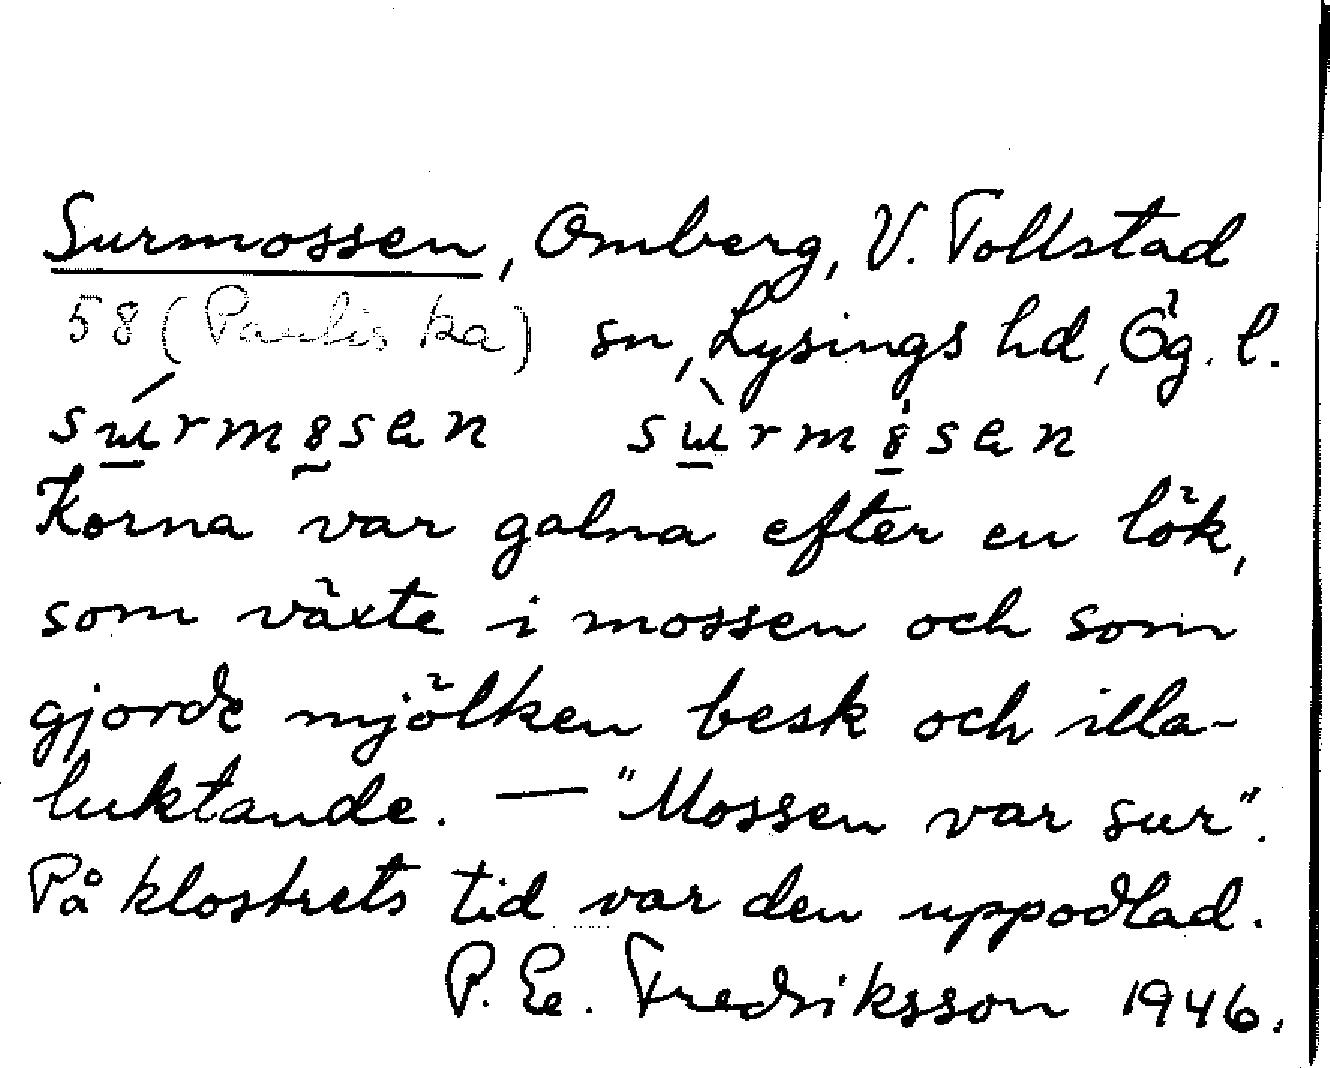 Surmossen, Omberg, V. Tollstad
58 (Pauliska) sn, Lysings hd, Ög. l.
Korna var galna efter en lök,
som växte i mossen och som
gjorde mjölken besk och illa-
luktande. — "Mossen var sur".
På klostrets tid var den uppodlad.
P. E. Fredriksson 1946.